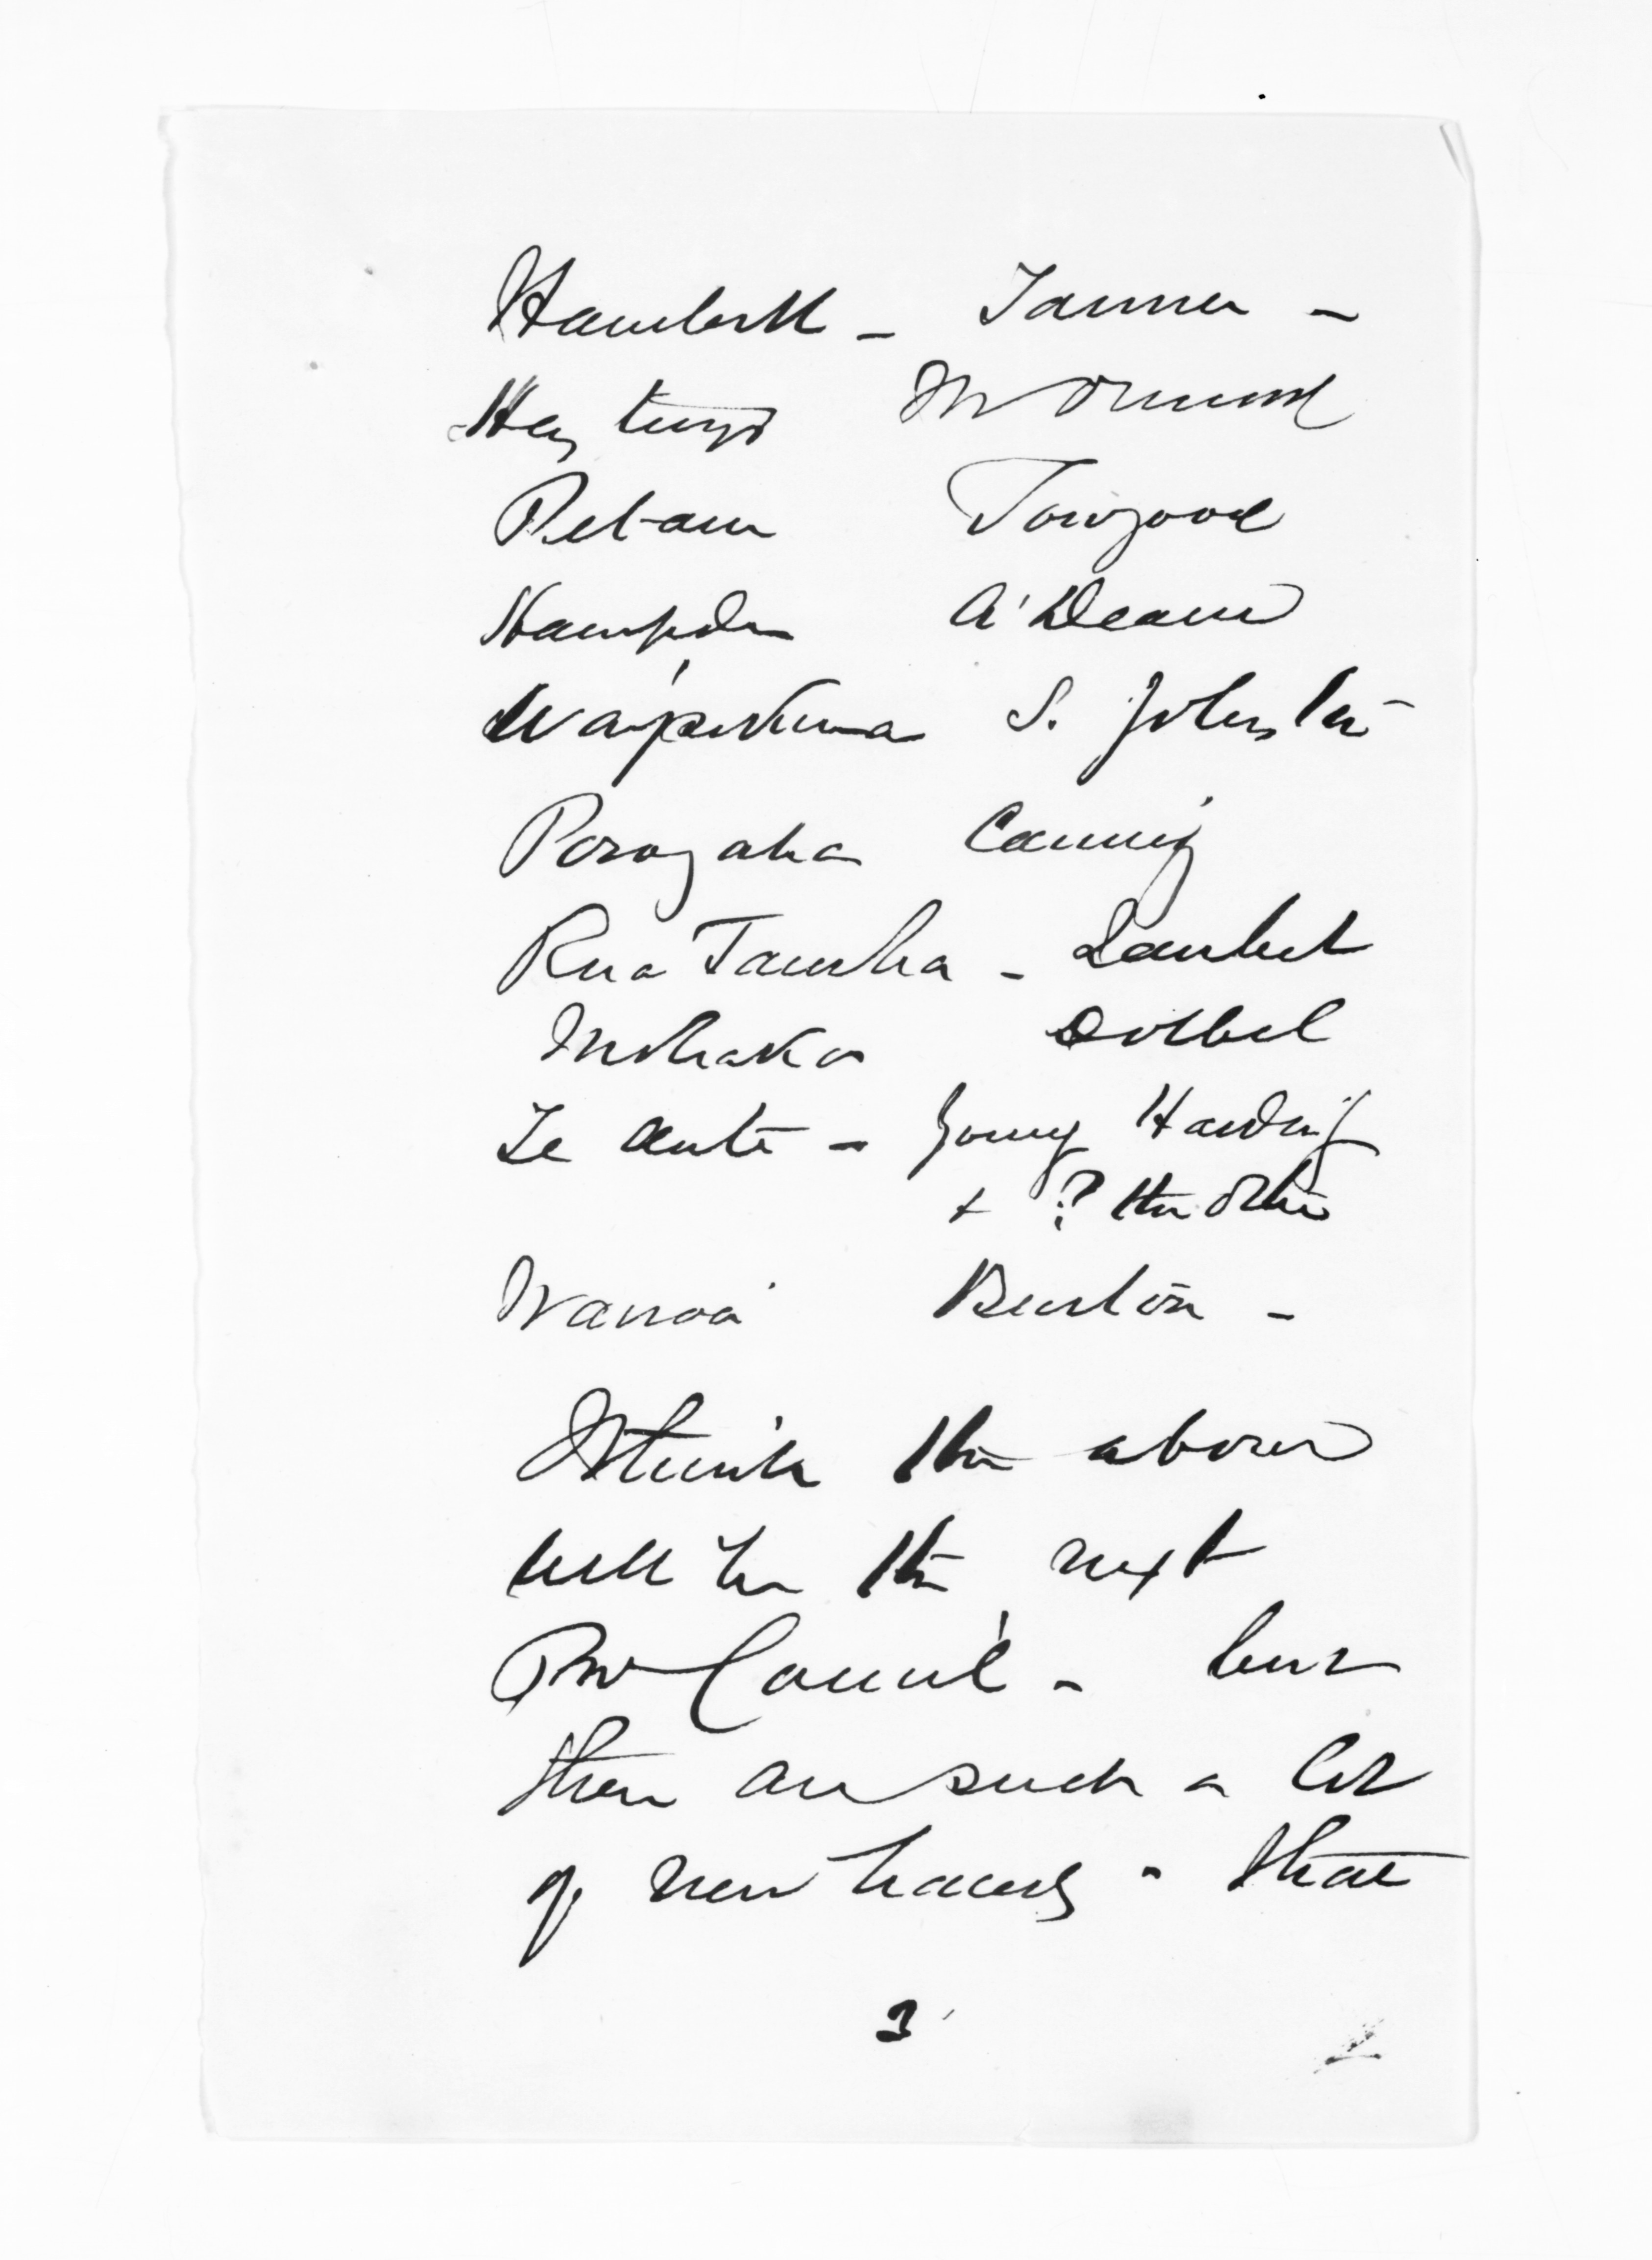 Havelock - Tanner -
Hastings Mr Ormond
Petane Towgood
Hampden A'Deane
Waipukurau S. Johnston
Porongahau Canning
Rua Taniwha - Lambert
Mohaka Dolbel
Te Aute - Young Harding
+ ?
Wairoa Burton -
I think the above
will be the next
Prov Council - but
there are such a lot
of new hands - that
3